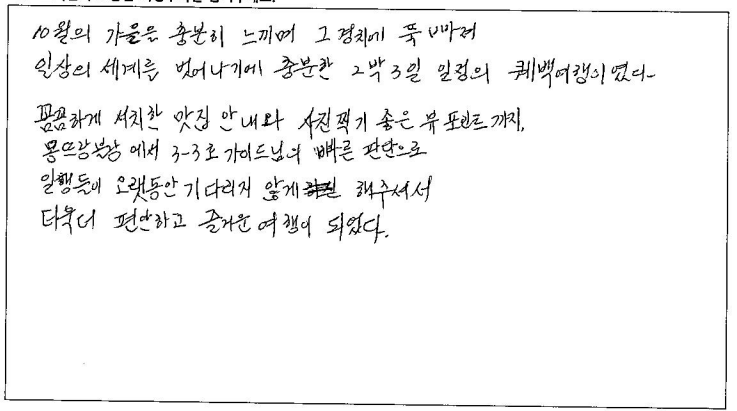 10월의 가을을 충분히 느끼며 그 경치에 푹 빠져
일상의 세계를 벗어나기에 충분한 2박 3일 일정의 퀘백여행이였다-
꼼꼼하게 서치한 맛집 안내와 사진찍기 좋은 뷰 포인트까지,
몽뜨랑블랑에서 3-3호 가이드님의 빠른 판단으로
일행들이 오랫동안 기다리지 않게 해주셔서
더욱더 편안하고 즐거운 여행이 되었다.